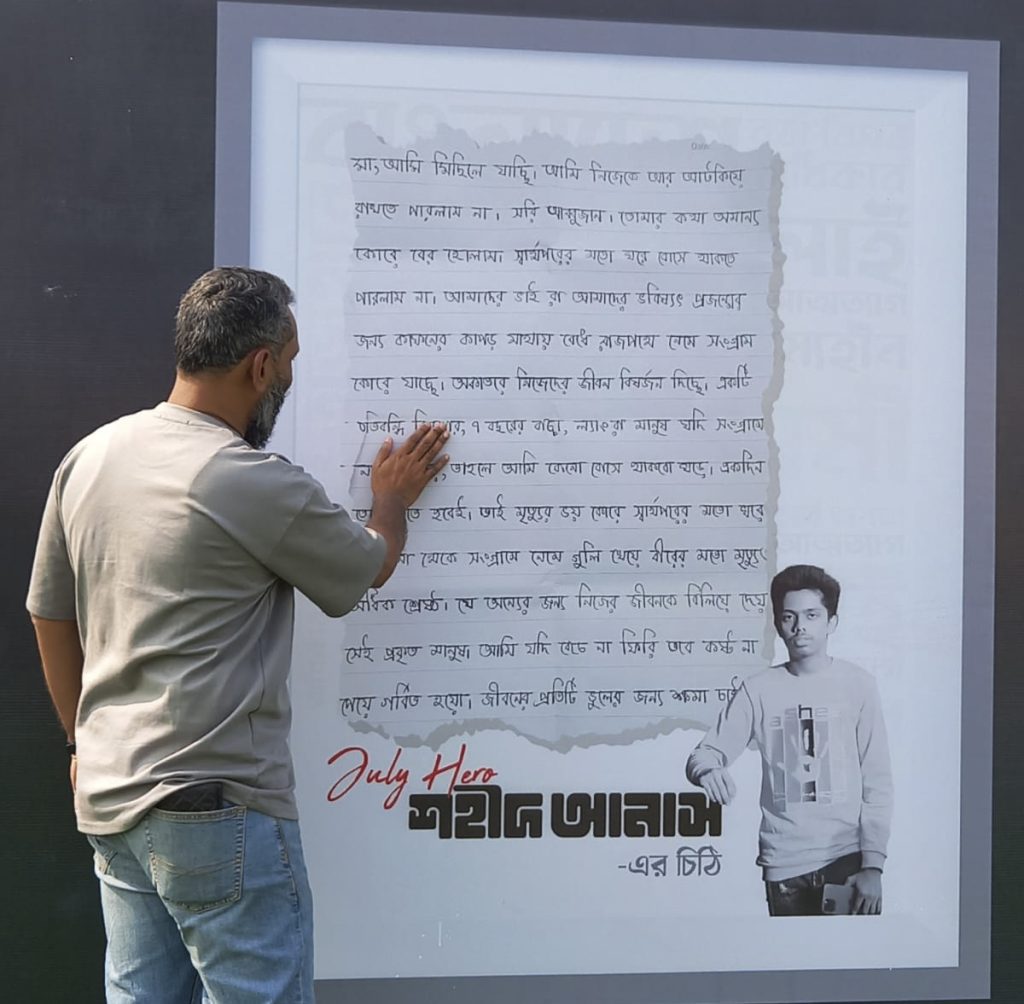 মা, আমি মিছিলে যাচ্ছি। আমি নিজেকে আর আটকিয়ে
রাখতে পারলাম না। সরি আব্বুজান। তোমার কথা অমান্য
কোরে বের হোলাম। স্বার্থপরের মতো ঘরে বোসে থাকতে
পারলাম না। আমাদের ভাই রা আমাদের ভবিষ্যৎ প্রজন্মের
জন্য কাফনের কাপড় মাথায় বেধে রাজপথে নেমে সংগ্রাম
কোরে যাচ্ছে। অকাতরে নিজেদের জীবন বিষর্জন দিচ্ছে। একটি
৭ বছরের বাচ্চা, ল্যাংরা মানুষ যদি সংগ্রামে
তাহলে আমি কেনো বোসে থাকবো ঘড়ে। একদিন
হবেই। তাই মৃত্যুর ভয় কোরে স্বার্থপরের মতো ঘরে
থেকে সংগ্রামে নেমে গুলি খেয়ে বীরের মতো মৃত্যু
অধিক শ্রেষ্ঠ। যে অন্যের জন্য নিজের জীবনকে বিলিয়ে দেয়
সেই প্রকৃত মানুষ। আমি যদি বেচে না ফিরি তবে কষ্ট না
পেয়ে গর্বিত হয়ো। জীবনের প্রতিটি ভুলের জন্য ক্ষমা চাই
July Hero
শহীদ আনাস
-এর চিঠি